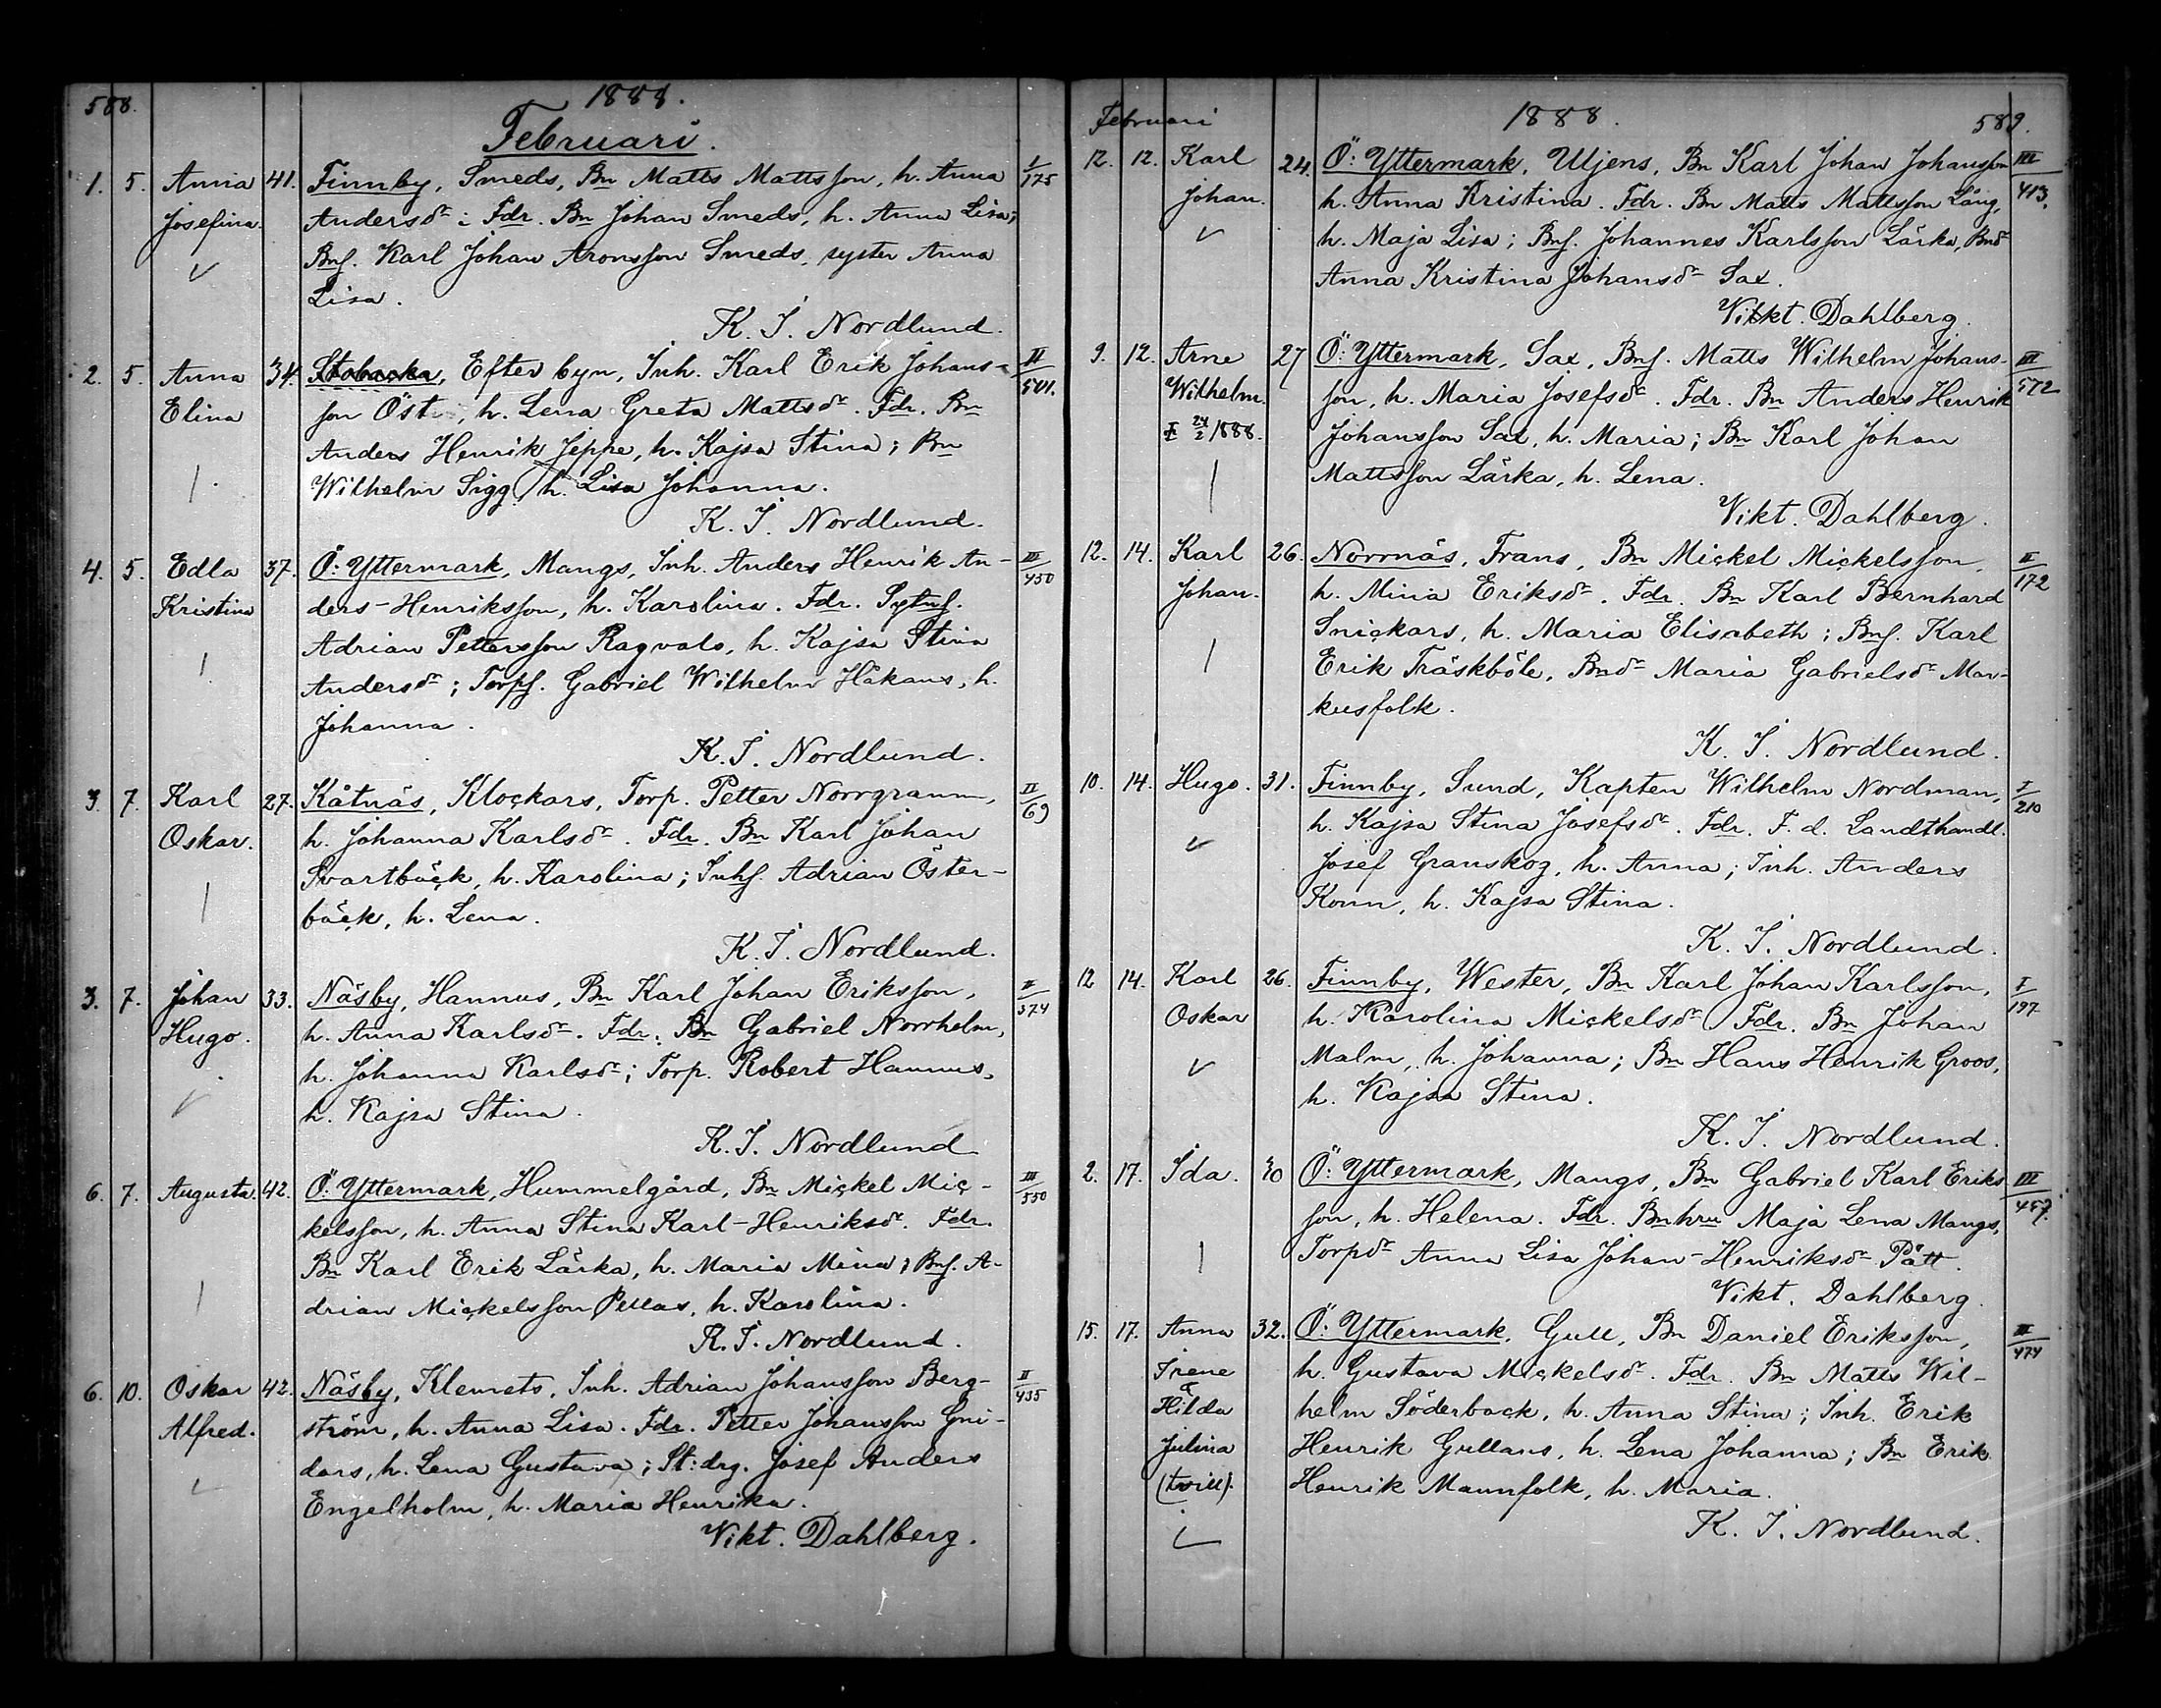 588.
1888.
Februari.
1. 5. Anna 41. Finnby, Smeds, Bn Matts Mattsson, h. Anna I/175
Josefina. Andersdr: Fdr. Bn Johan Smeds, h. Anna Lisa;
Bns. Karl Johan Aronsson Smeds, syster Anna
Lisa.
K. I. Nordlund.
2. 5. Anna 34. Stobacka, Efter byn, Inh. Karl Erik Johans- II/501.
Elina son Öst, h. Lena Greta Mattsdr. Fdr. Bn
Anders Henrik Jeppe, h. Kajsa Stina; Bn
Wilhelm Sigg, h. Lisa Johanna.
K. I. Nordlund.
4. 5. Edla 37. Ö: Yttermark, Mangs, Inh. Anders Henrik An- III/450
Kristina ders-Henriksson, h. Karolina. Fdr. Sytns.
Adrian Pettersson Ragvals, h. Kajsa Stina
Andersdr; Torps. Gabriel Wilhelm Håkans, h.
Johanna.
K. I. Nordlund.
3. 7. Karl 27. Kåtnäs, Klockars, Torp. Petter Norrgrann, II/69
Oskar. h. Johanna Karlsdr. Fdr. Bn Karl Johan
Svartbäck, h. Karolina; Inhs. Adrian Öster-
bäck, h. Lena.
K. I. Nordlund.
3. 7. Johan 33. Näsby, Hannus, Bn Karl Johan Eriksson, II/374
Hugo. h. Anna Karlsdr. Fdr. Bn Gabriel Norrholm,
h. Johanna Karlsdr; Torp. Robert Hannus,
h. Kajsa Stina.
K. I. Nordlund
6. 7. Augusta. 42. Ö: Yttermark, Hummelgård, Bn Mickel Mic- III/550
kelsson, h. Anna Stina Karl-Henriksdr. Fdr.
Bn Karl Erik Lärka, h. Maria Mina; Bns. A-
drian Mickelsson Pellas, h. Karolina.
K. I. Nordlund.
6. 10. Oskar 42. Näsby, Klemets, Inh. Adrian Johansson Berg- II/435
Alfred. ström, h. Anna Lisa. Fdr. Petter Johansson Gni-
dars, h. Lena Gustava; St: drg. Josef Anders
Engelholm, h. Maria Henrika.
Vikt. Dahlberg.
Februari
1888.
589.
12. 12. Karl 24. Ö: Yttermark, Uljens, Bn Karl Johan Johansson III/413.
Johan. h. Anna Kristina. Fdr. Bn Matts Mattsson Lång,
h. Maja Lisa; Bns. Johannes Karlsson Lärka, Bndr
Anna Kristina Johansdr Sax.
Vikt. Dahlberg.
9. 12. Arne 27 Ö: Yttermark, Sax, Bns. Matts Wilhelm Johans- III/572
Wilhelm. son, h. Maria Josefsdr. Fdr. Bn Anders Henrik
‡ 24/2 1888. Johansson Sax, h. Maria; Bn Karl Johan
Mattsson Lärka, h. Lena.
Vikt. Dahlberg.
12. 14. Karl 26. Norrnäs, Frans, Bn Mickel Mickelsson, II/172
Johan. h. Mina Eriksdr. Fdr. Bn Karl Bernhard
Snickars, h. Maria Elisabeth; Bns. Karl
Erik Träskböle, Bndr Maria Gabrielsdr Mar-
kusfolk.
K. I. Nordlund.
10. 14. Hugo. 31. Finnby, Sund, Kapten Wilhelm Nordman, I/210
h. Kajsa Stina Josefsdr. Fdr. F. d. Landthandl.
Josef Granskog, h. Anna; Inh. Anders
Konn, h. Kajsa Stina.
K. I. Nordlund.
12 14. Karl 26. Finnby, Wester, Bn Karl Johan Karlsson, I/197
Oskar h. Karolina Mickelsdr Fdr. Bn Johan
Malm, h. Johanna; Bn Hans Henrik Groos,
h. Kajsa Stina.
K. I. Nordlund.
2. 17. Ida. 30 Ö: Yttermark, Mangs, Bn Gabriel Karl Eriks III/457.
son, h. Helena. Fdr. Bnhru Maja Lena Mangs,
Torpdr Anna Lisa Johan-Henriksdr Pått.
Vikt. Dahlberg.
15. 17. Anna 32. Ö: Yttermark, Gull, Bn Daniel Eriksson, III/474
Irene h. Gustava Mickelsdr. Fdr. Bn Matts Wil-
& Hilda helm Söderback, h. Anna Stina; Inh. Erik
Julina Henrik Gullans, h. Lena Johanna; Bn Erik
(tvill). Henrik Mannfolk, h. Maria.
K. I. Nordlund.